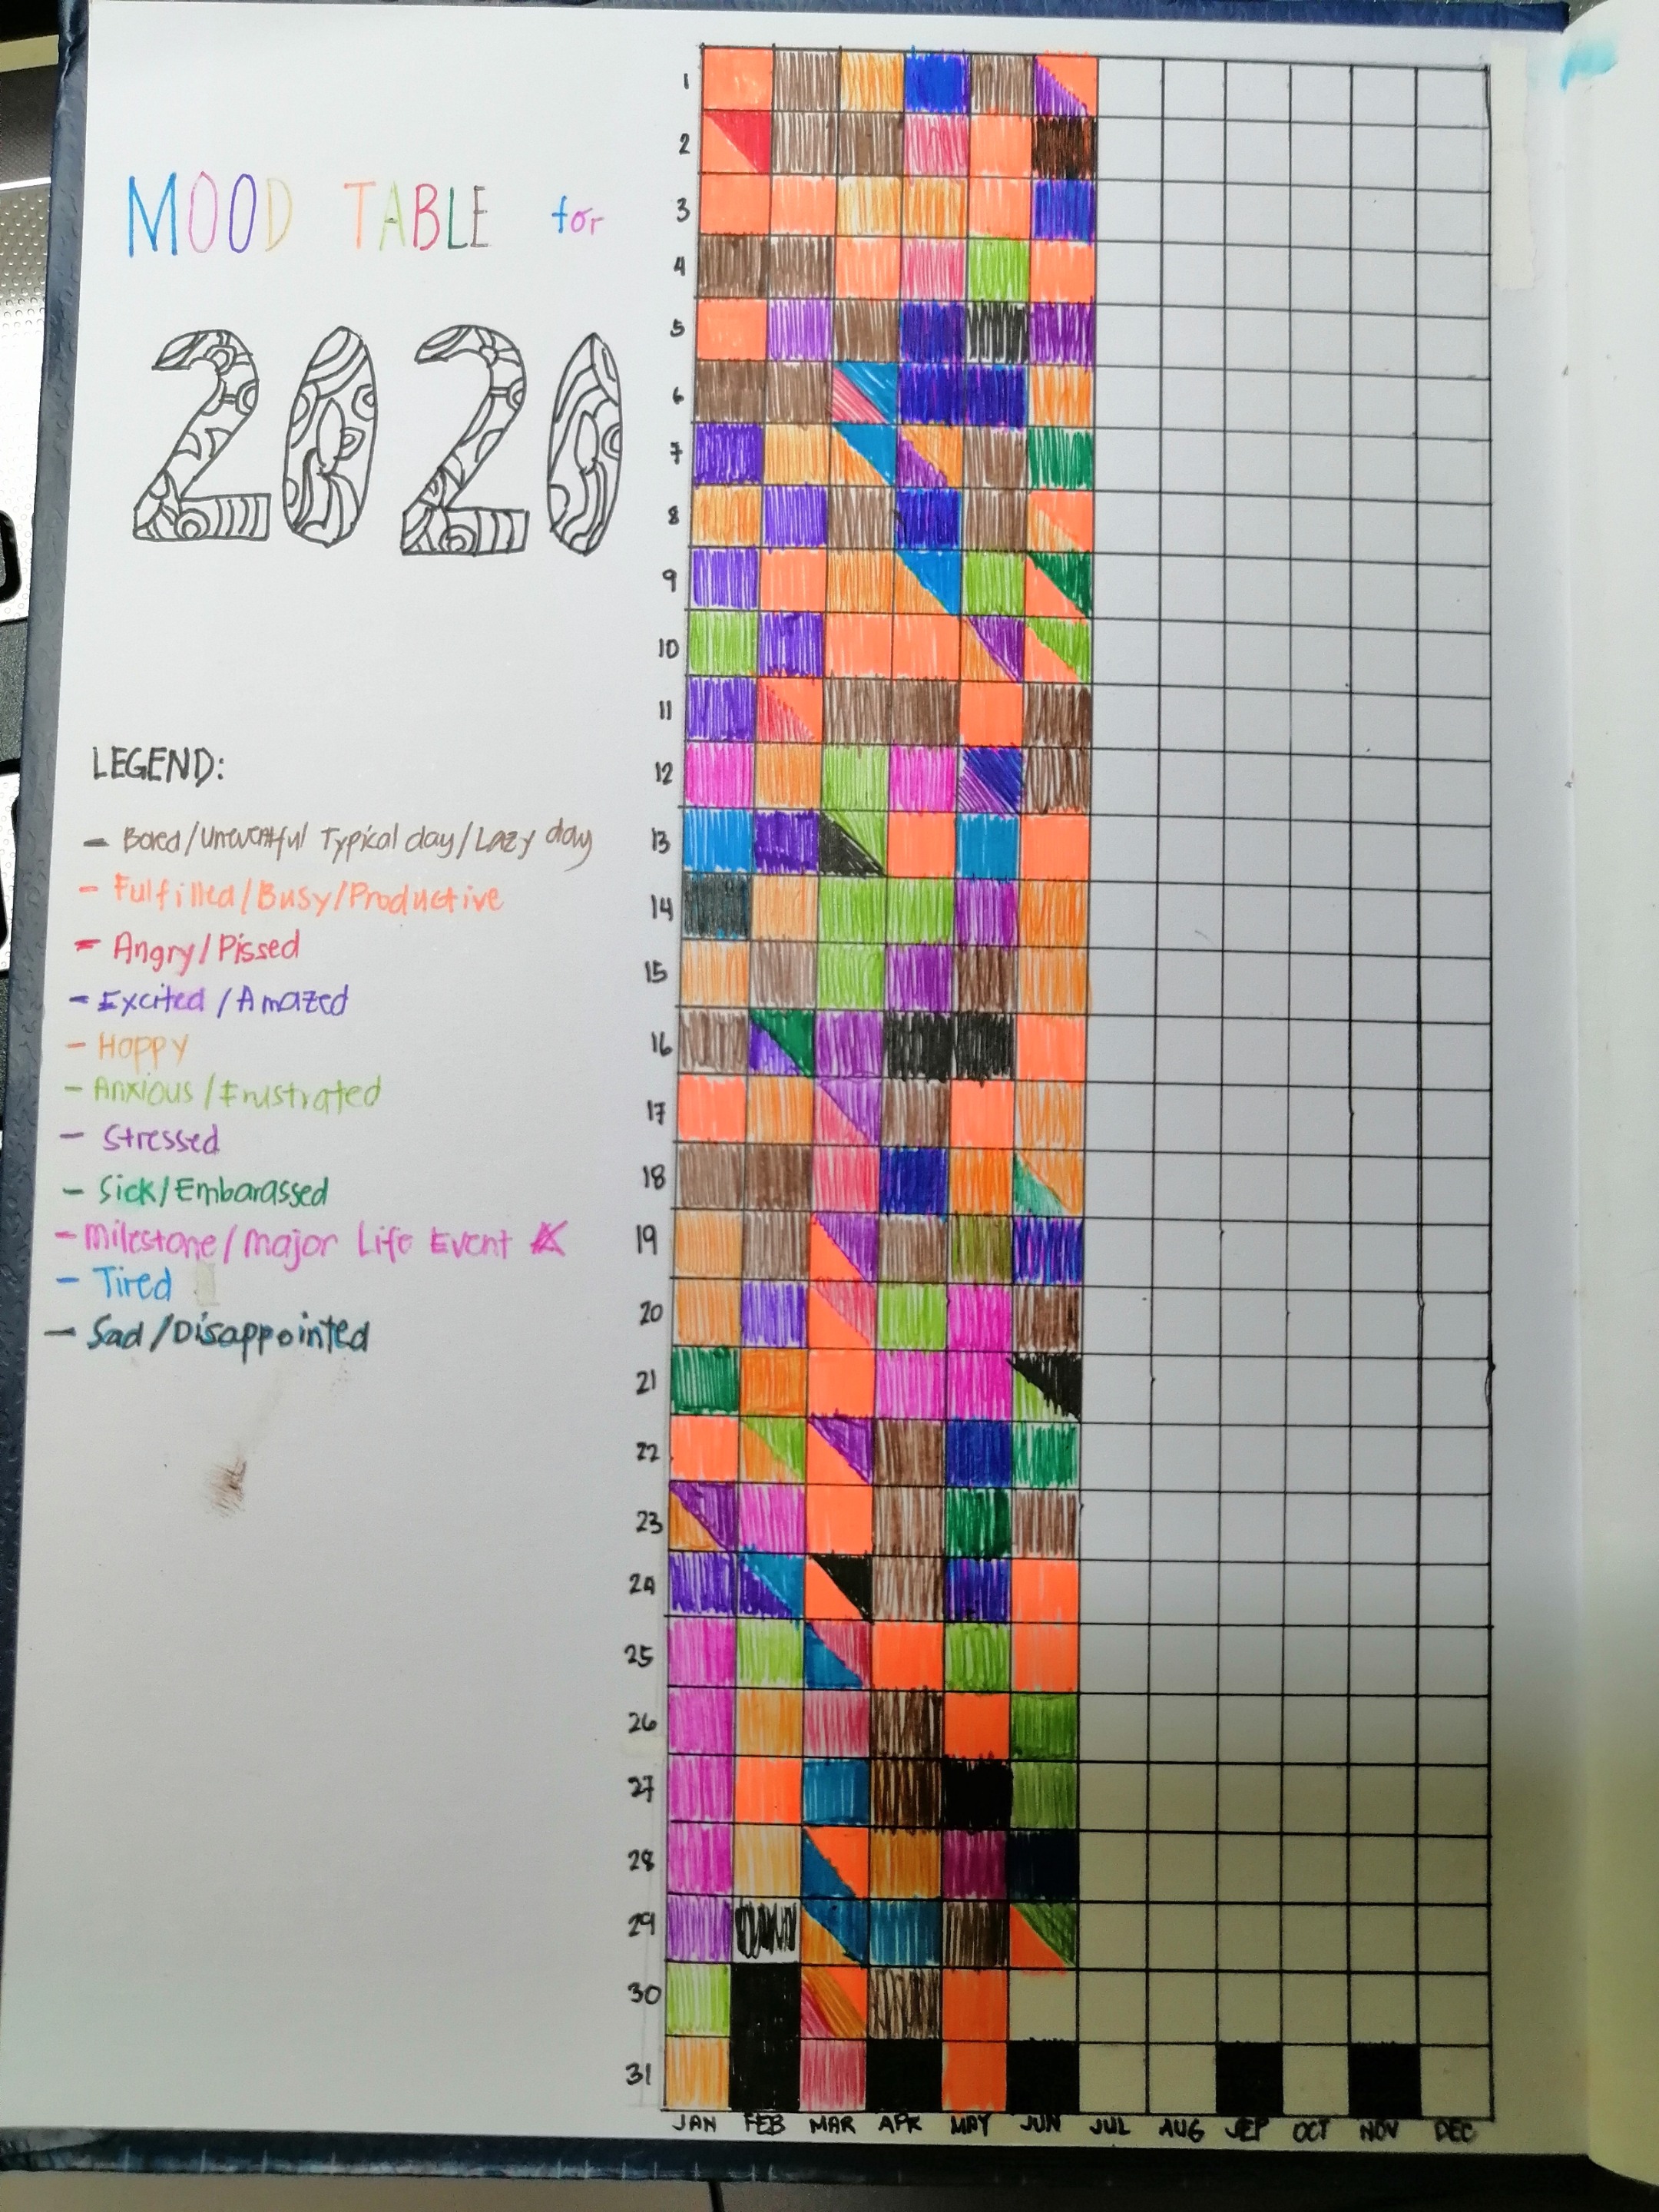 MOOD TABLE for
2020
LEGEND:
- Bored/Uneventful Typical day/Lazy day
- Fulfilled/Busy/Productive
- Angry/Pissed
- Excited/Amazed
- Happy
- Anxious/Frustrated
- Stressed
- Sick/Embarassed
- Milestone/Major Life Event
- Tired
- Sad/Disappointed
1
2
3
4
5
6
7
8
9
10
11
12
13
14
15
16
17
18
19
20
21
22
23
24
25
26
27
28
29
30
31
JAN FEB MAR APR MAY JUN JUL AUG SEP OCT NOV DEC